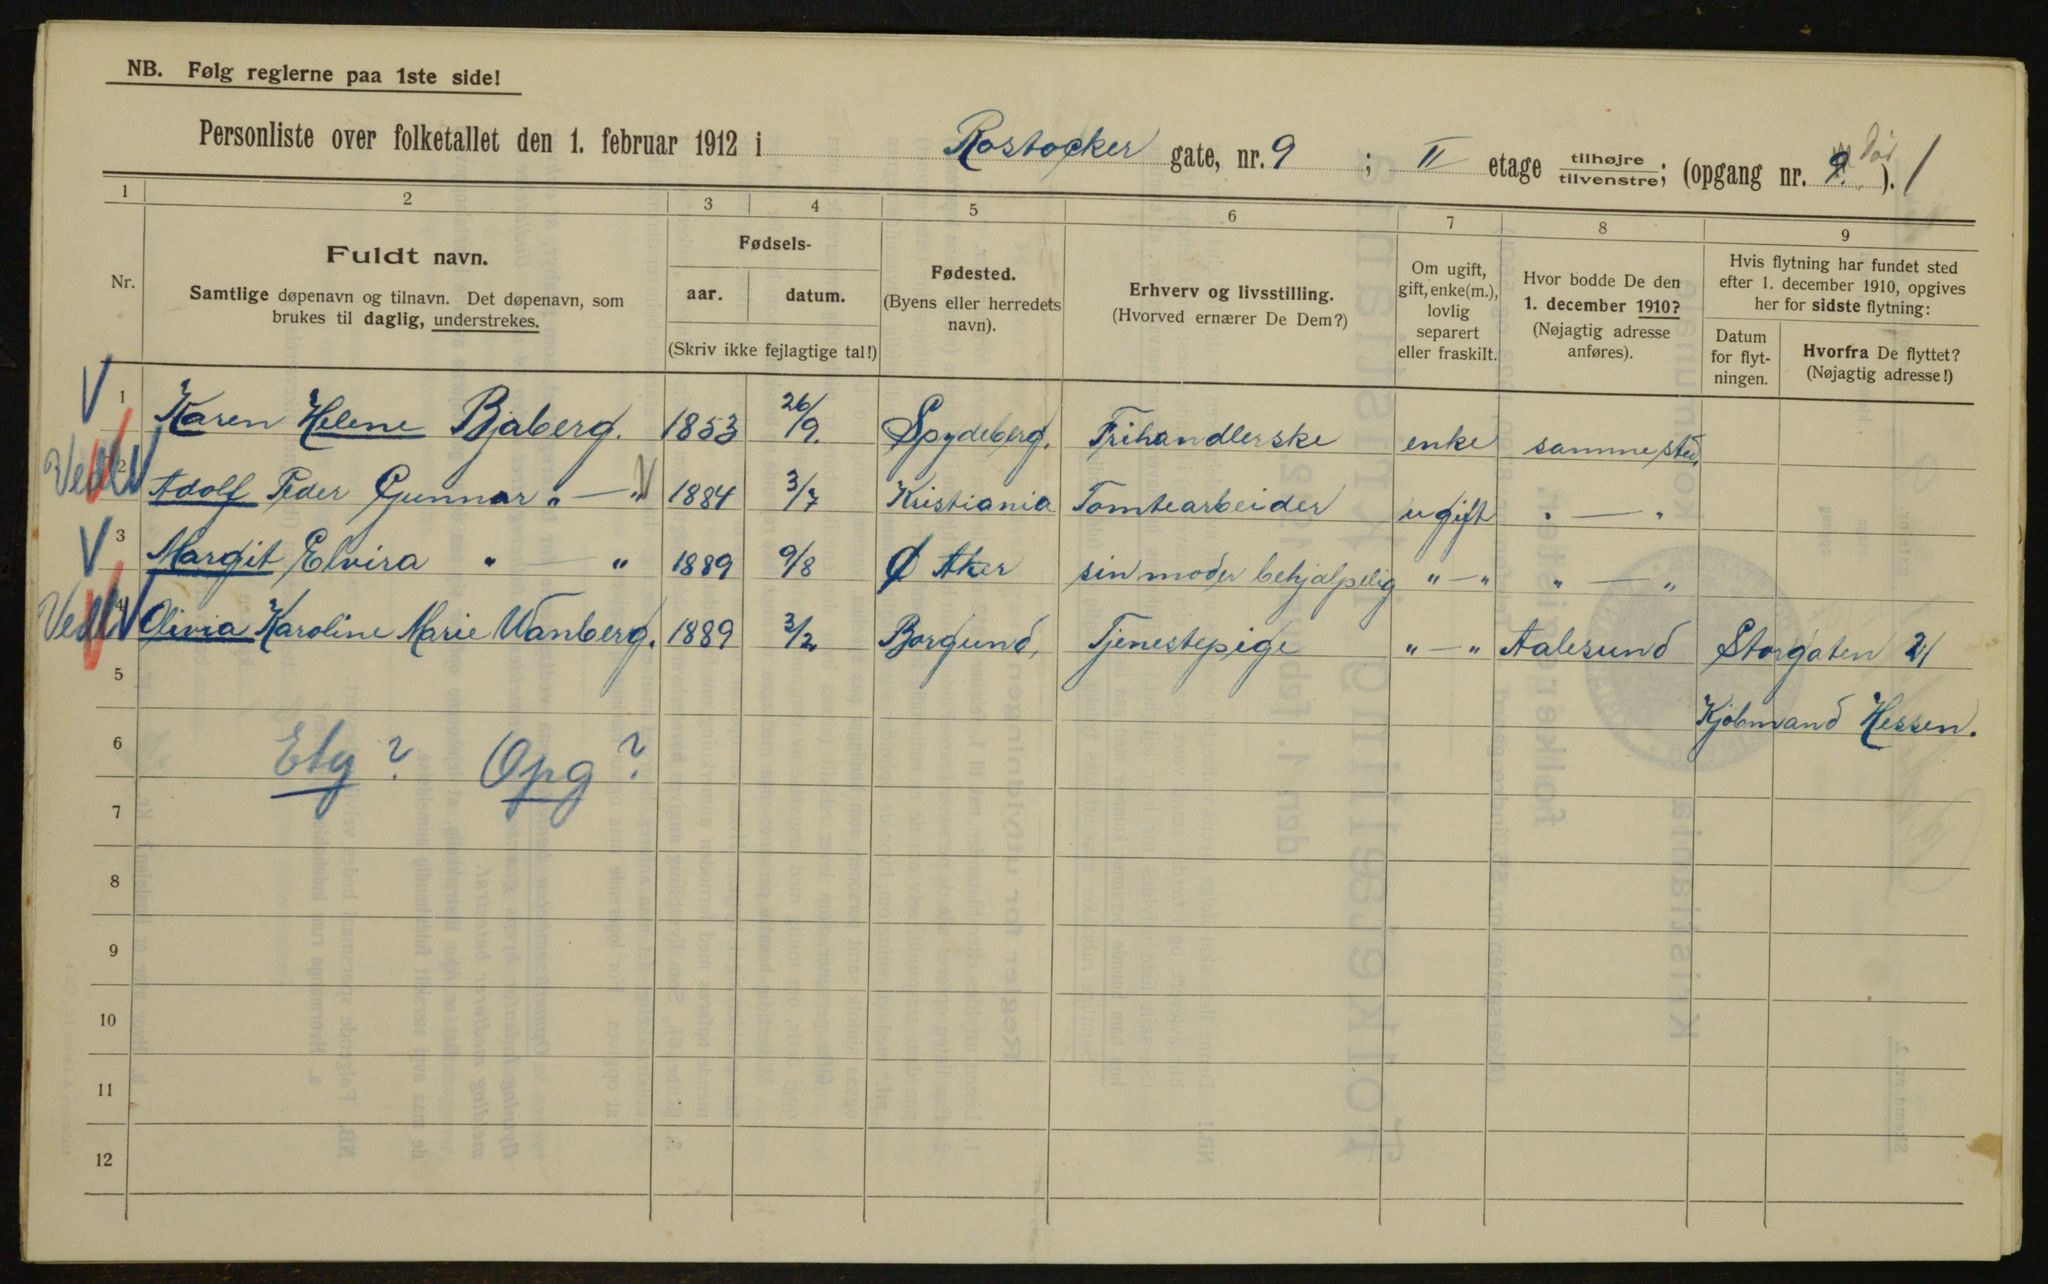 NB. Følg reglerne paa 1ste side!
Personliste over folketallet den 1. februar 1912 i Rostocker gate, nr. 9 ; II etage tilhøjre / tilvenstre; (opgang nr. 9 ). 1
1 2 3 4 5 6 7 8 9
Nr.
Fuldt navn.
Samtlige døpenavn og tilnavn. Det døpenavn, som
brukes til daglig, understrekes.
Fødsels-
aar. datum.
(Skriv ikke fejlagtige tal!)
Fødested.
(Byens eller herredets
navn).
Erhverv og livsstilling.
(Hvorved ernærer De Dem?)
Om ugift,
gift, enke(m.),
lovlig
separert
eller fraskilt.
Hvor bodde De den
1. december 1910?
(Nøjagtig adresse
anføres).
Hvis flytning har fundet sted
efter 1. december 1910, opgives
her for sidste flytning:
Datum
for flyt-
ningen.
Hvorfra De flyttet?
(Nøjagtig adresse!)
1 Karen Helene Bjaberg. 1853 26/9. Spydeberg. Frihandlerske enke sammested.
2 Adolf Peder Gunnar „ — „ 1884 3/7 Kristiania Tomtearbeider ugift „ — „
3 Margit Elvira „ — „ 1889 9/8 Ø Aker sin moder behjælpelig „ — „ „ — „
4 Olivia Karoline Marie Wanberg. 1889 3/2 Borgund, Tjenestepige „ — „ Aalesund Storgaten 21
5 Kjøbmand Hessen.
6 Etg? Opg?
7
8
9
10
11
12